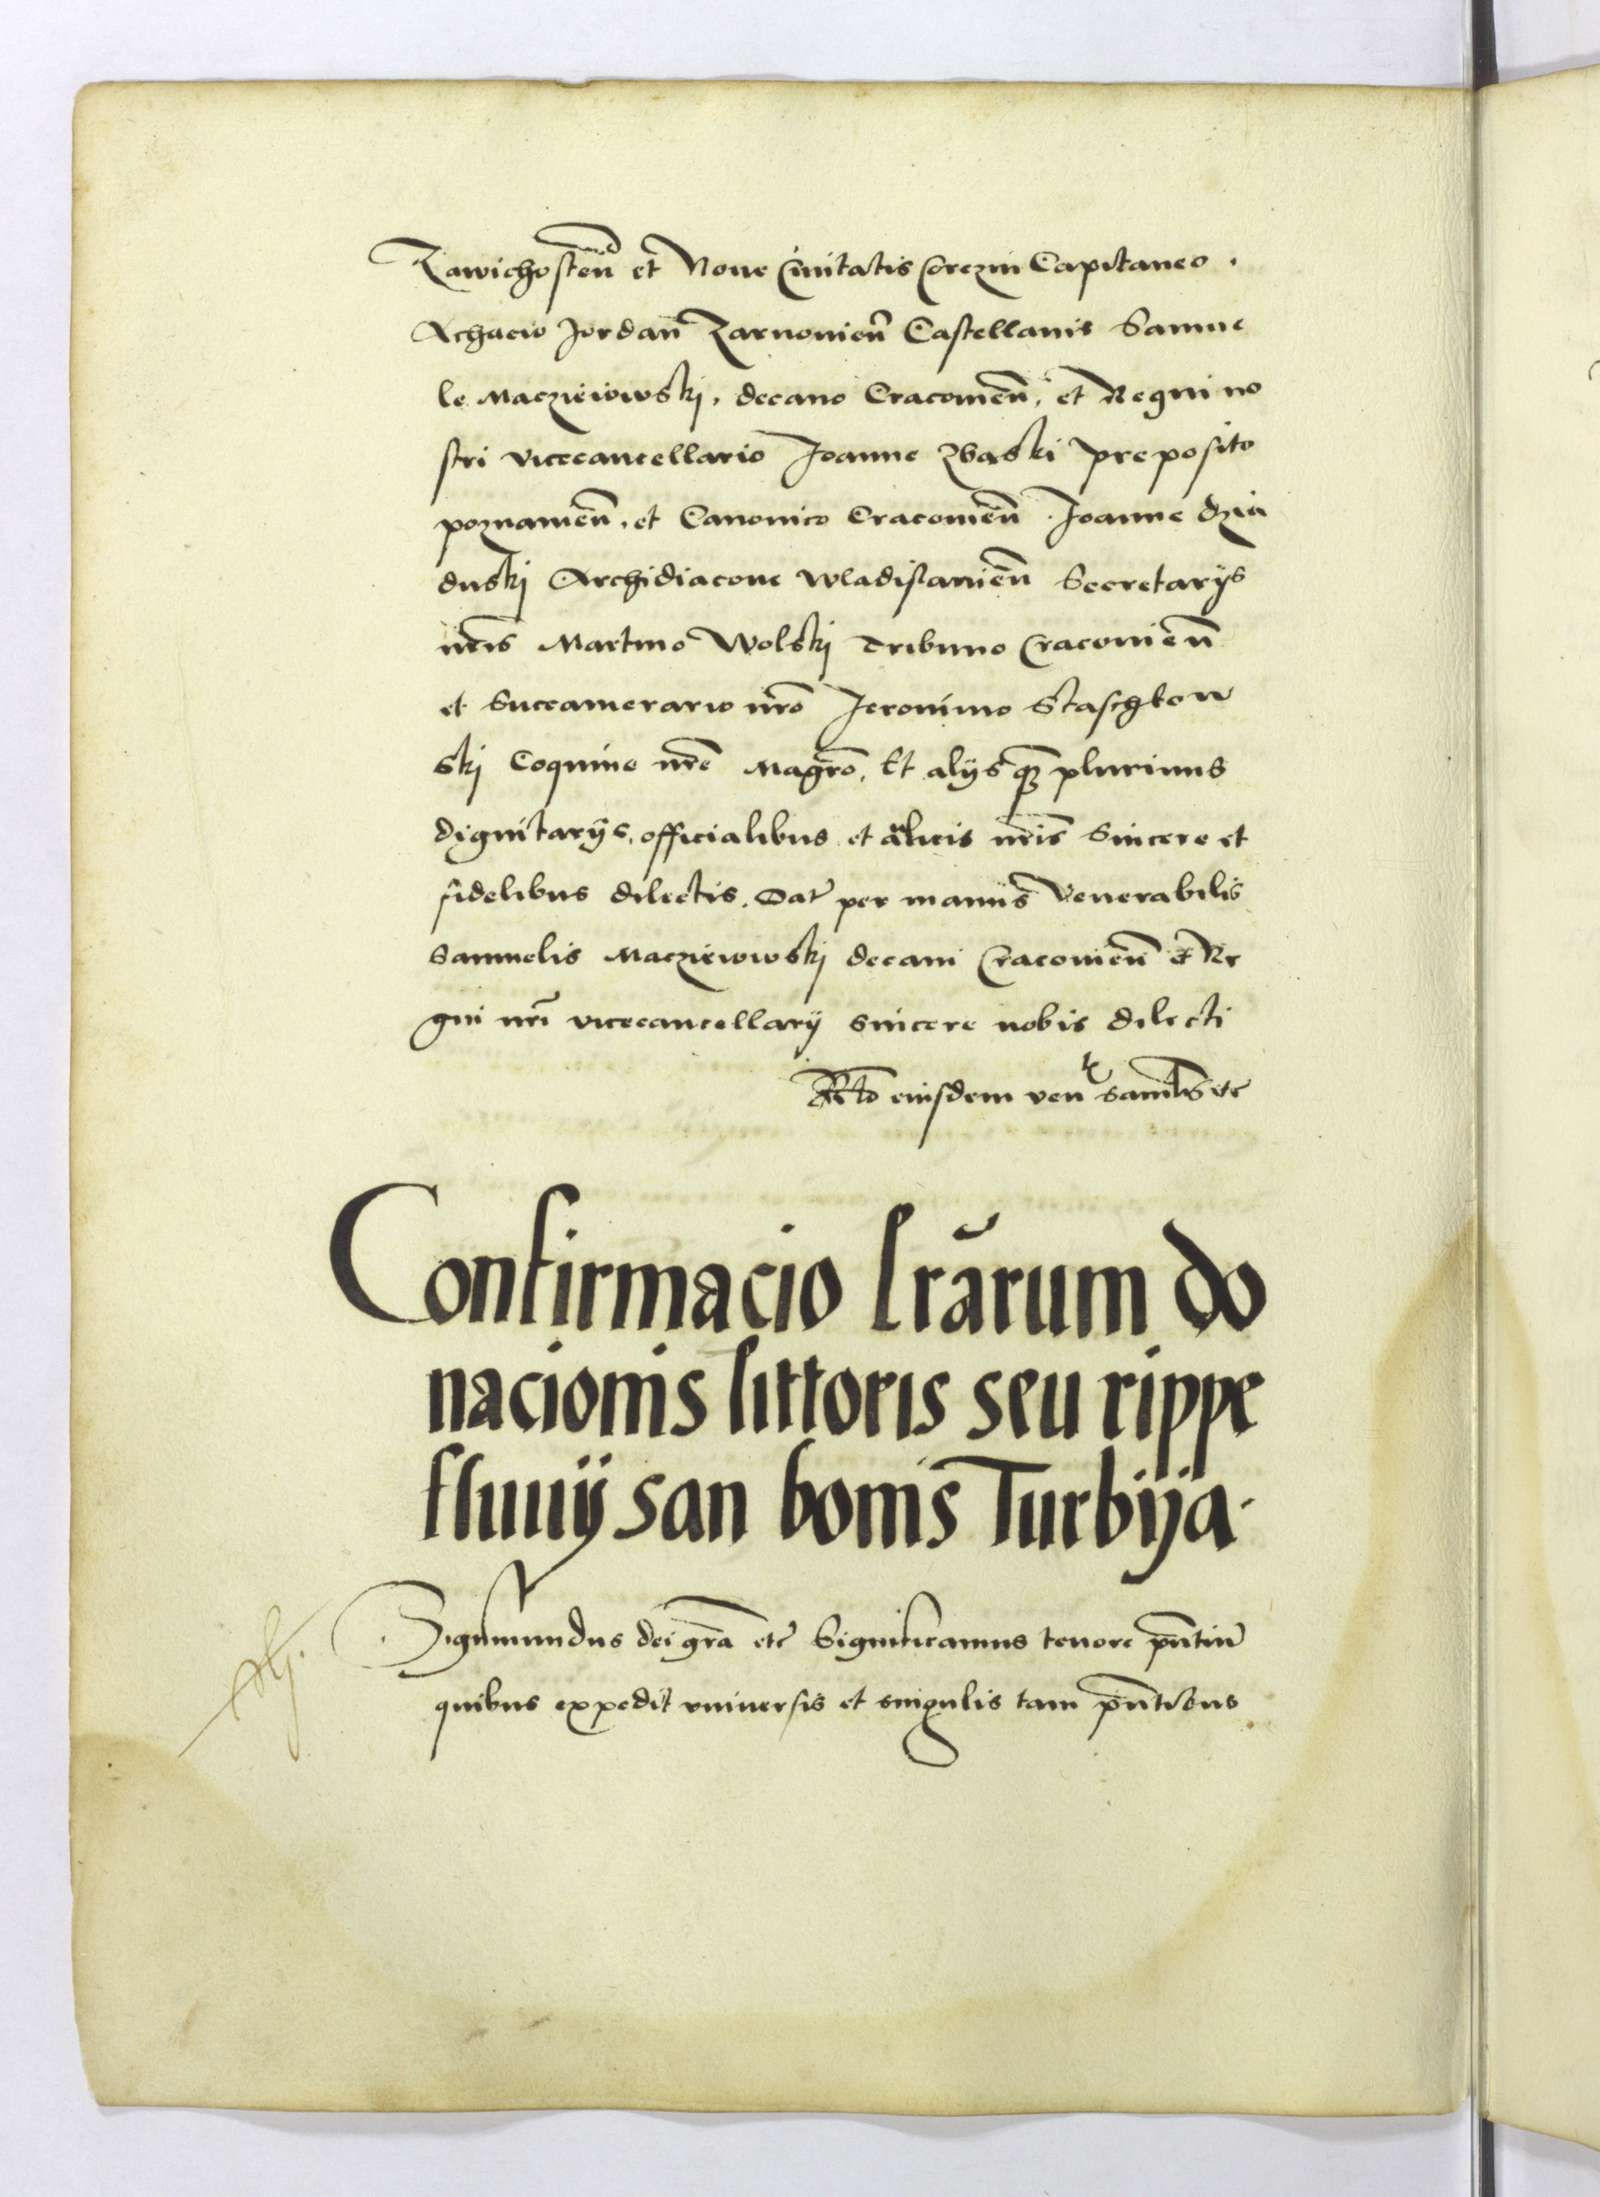 Zawichosteñ et Noue Ciuitatis Corczin Capitaneo.
Achacio Jordañ Zarnouieñ Castellanis Samue
le Macziewowskj, decano Cracouieñ, et Regni no
stri vicecancellario Joanne Zbaski preposito
poznanieñ, et Canonico Cracouieñ. Joanne dzia
duskj Archidiacono wladislauieñ Secretarijs
nr̃is Martino Wolskj Tribuno Cracouieñ
et Succamerario nr̃o Jeronimo Staschkow
skj Coquine nr̃e Magr̃o, Et alijs qȝ plurimis
dignitarijs, officialibus et aulicis nr̃is Sincere et
fidelibus dilectis. Dat̃ per manus Venerabilis
Samuelis Macziewowskj decani Cracouieñ et Re
gni nr̃i vicecancellarij sincere nobis dilecti
Rel̃o eiusdem ven̄ Samlis etc̃
Confirmacio lr̃arum do
nacionis littoris seu rippe
fluuij san bonis Turbija.
Sigismundus dei gr̃a etc̃ Significamus tenore pñtiũ
quibus expedit vniuersis et singulis tam pñtibus